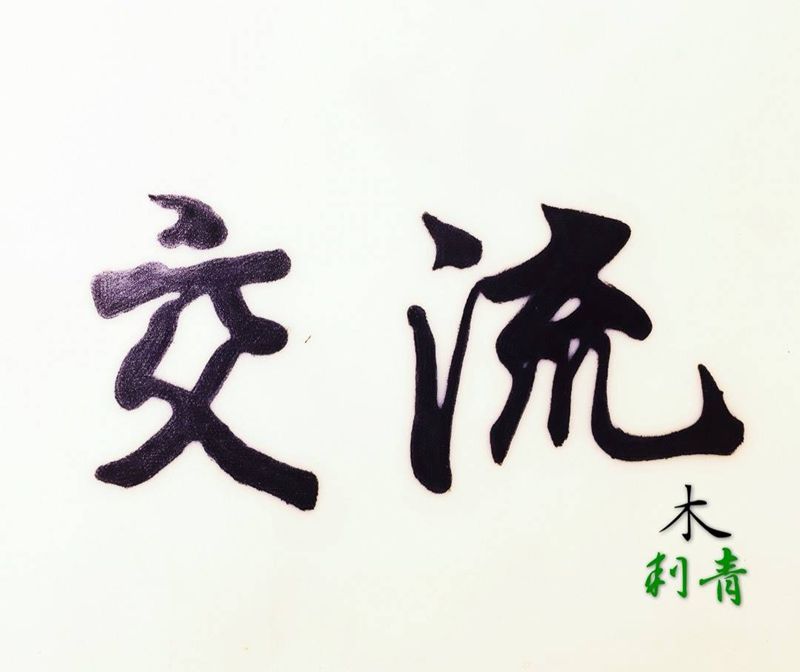 交流
木
刺青